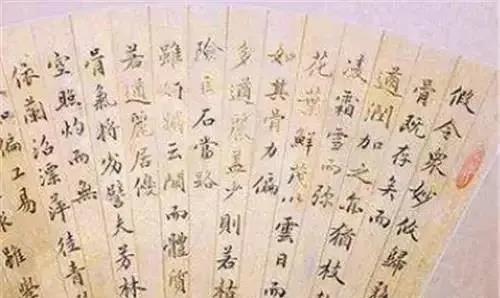 假令衆妙攸歸
骨既存矣而
遒潤加之亦猶枝
凌霜雪而弥
花葉鮮茂以雲日而
如其骨力偏
多遒麗盖少則若枯
險巨石當路
雖妍媚云闕而體質
若遒麗居優
骨氣將劣譬夫芳林
空照灼而無
依蘭沼漂萍徒青
偏工易
雖學